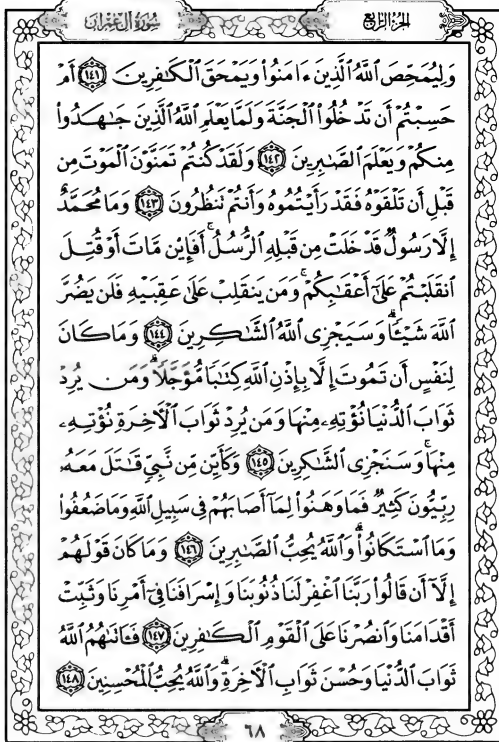 سُورَةُ آلِ عِمْرَانَ الجُزْءُ الرَّابِعُ
وَلِيُمَحِّصَ ٱللَّهُ ٱلَّذِينَ ءَامَنُوا۟ وَيَمْحَقَ ٱلْكَـٰفِرِينَ ١٤١ أَمْ
حَسِبْتُمْ أَن تَدْخُلُوا۟ ٱلْجَنَّةَ وَلَمَّا يَعْلَمِ ٱللَّهُ ٱلَّذِينَ جَـٰهَدُوا۟
مِنكُمْ وَيَعْلَمَ ٱلصَّـٰبِرِينَ ١٤٢ وَلَقَدْ كُنتُمْ تَمَنَّوْنَ ٱلْمَوْتَ مِن
قَبْلِ أَن تَلْقَوْهُ فَقَدْ رَأَيْتُمُوهُ وَأَنتُمْ تَنظُرُونَ ١٤٣ وَمَا مُحَمَّدٌ
إِلَّا رَسُولٌ قَدْ خَلَتْ مِن قَبْلِهِ ٱلرُّسُلُ ۚ أَفَإِي۟ن مَّاتَ أَوْ قُتِلَ
ٱنقَلَبْتُمْ عَلَىٰٓ أَعْقَـٰبِكُمْ ۚ وَمَن يَنقَلِبْ عَلَىٰ عَقِبَيْهِ فَلَن يَضُرَّ
ٱللَّهَ شَيْـًٔا ۗ وَسَيَجْزِى ٱللَّهُ ٱلشَّـٰكِرِينَ ١٤٤ وَمَا كَانَ
لِنَفْسٍ أَن تَمُوتَ إِلَّا بِإِذْنِ ٱللَّهِ كِتَـٰبًا مُّؤَجَّلًا ۗ وَمَن يُرِدْ
ثَوَابَ ٱلدُّنْيَا نُؤْتِهِۦ مِنْهَا وَمَن يُرِدْ ثَوَابَ ٱلْـَٔاخِرَةِ نُؤْتِهِۦ
مِنْهَا ۚ وَسَنَجْزِى ٱلشَّـٰكِرِينَ ١٤٥ وَكَأَيِّن مِّن نَّبِىٍّ قَـٰتَلَ مَعَهُۥ
رِبِّيُّونَ كَثِيرٌ فَمَا وَهَنُوا۟ لِمَآ أَصَابَهُمْ فِى سَبِيلِ ٱللَّهِ وَمَا ضَعُفُوا۟
وَمَا ٱسْتَكَانُوا۟ ۗ وَٱللَّهُ يُحِبُّ ٱلصَّـٰبِرِينَ ١٤٦ وَمَا كَانَ قَوْلَهُمْ
إِلَّآ أَن قَالُوا۟ رَبَّنَا ٱغْفِرْ لَنَا ذُنُوبَنَا وَإِسْرَافَنَا فِىٓ أَمْرِنَا وَثَبِّتْ
أَقْدَامَنَا وَٱنصُرْنَا عَلَى ٱلْقَوْمِ ٱلْكَـٰفِرِينَ ١٤٧ فَـَٔاتَىٰهُمُ ٱللَّهُ
ثَوَابَ ٱلدُّنْيَا وَحُسْنَ ثَوَابِ ٱلْـَٔاخِرَةِ ۗ وَٱللَّهُ يُحِبُّ ٱلْمُحْسِنِينَ ١٤٨
٦٨